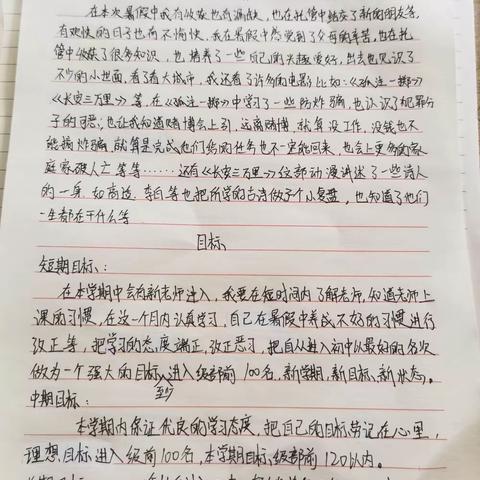 在本次暑假中我有收获也有遗憾，也在托管中结交了新的朋友等，
有欢快的日子也有不愉快，我在暑假中感觉到了父母的辛苦，也在托
管中收获了很多知识，也培养了一些自己的兴趣爱好，出去也见识了
不少的小世面，看了看大城市，我还看了许多的电影比如：《孤注一掷》
《长安三万里》等，在《孤注一掷》中学习了一些防诈骗，也认识了犯罪分
子的可恶；也让我知道赌博会上引，远离赌博，就算没工作，没钱也不
能搞诈骗，就算是完成他们给的任务也不一定能回来，也会上更多的家
庭家破人亡等等……还有《长安三万里》这部动漫讲述了一些诗人
的一身，如高适、李白等也把所学的古诗做了个小复盘，也知道了他们
一生都在干什么等
目标
短期目标：
在本学期中会有新老师进入，我要在短时间内了解老师，知道老师上
课的习惯，在这一个月内认真学习，自己在暑假中养成不好的习惯进行
改正等，把学习的态度端正，改正恶习，把自从进入初中以最好的名次
做为一个强大的目标，进入级部前100名，新学期、新目标、新状态。
至少
中期目标：
本学期内保证优良的学习态度，把自己的目标劳记在心里，
理想目标进入级前100名，本学期目标级部前120以内。